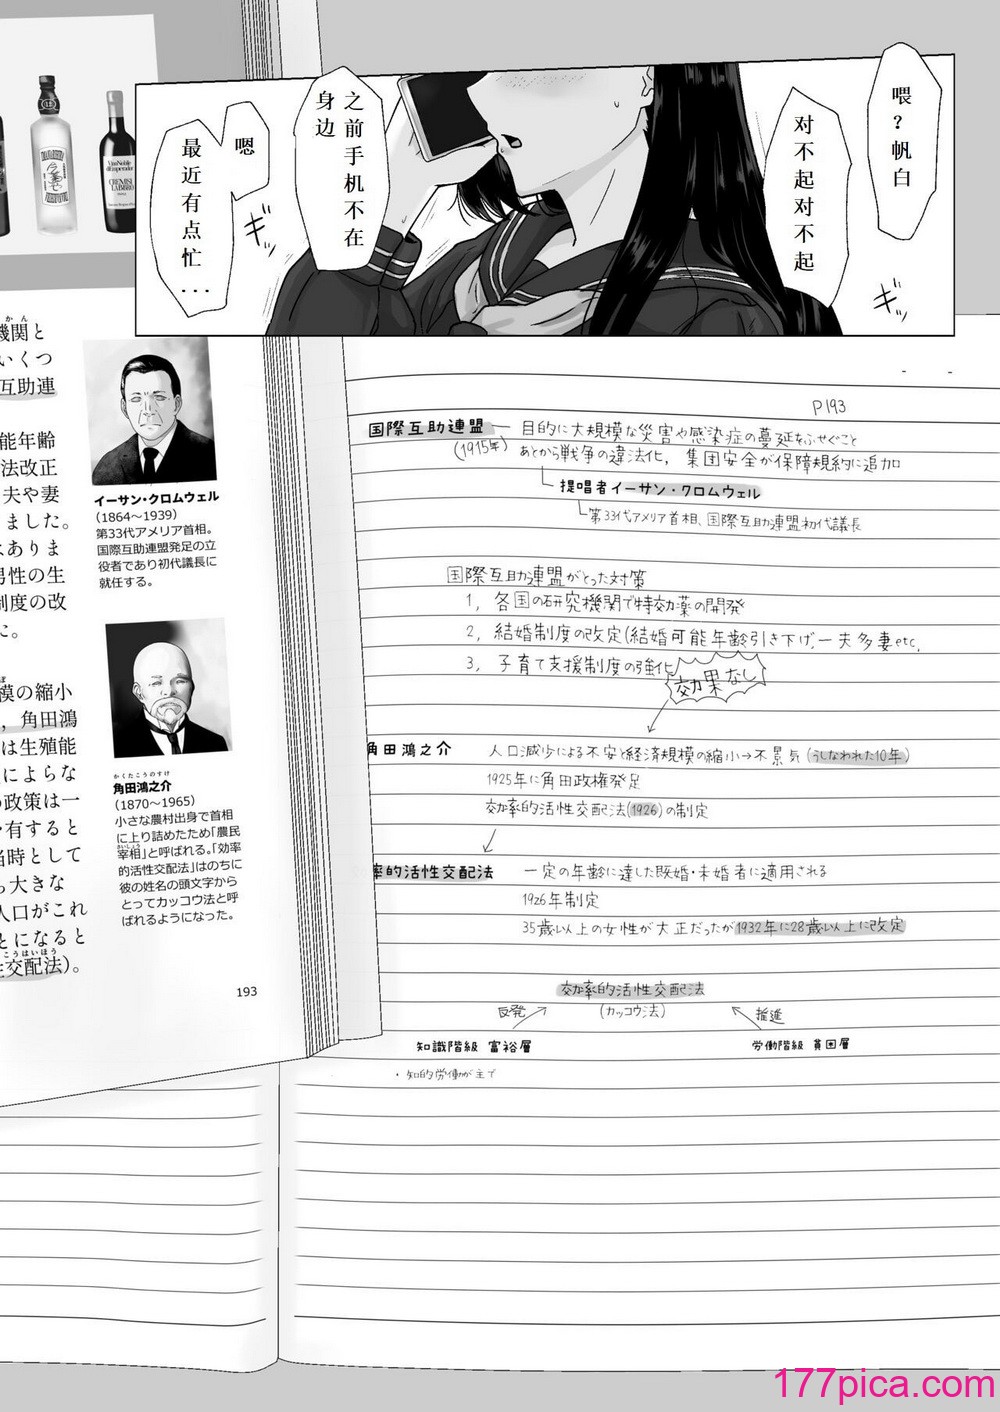 喂？帆白
对不起对不起
之前手机不在
身边
嗯
最近有点忙...
ギッ
ギッ
かん
機関と
いくつ
互助連
能年齢
法改正
夫や妻
ました。
はありま
男性の生
制度の改
た。
模の縮小
，角田鴻
は生殖能
によらな
の政策は一
有すると
当時として
も大きな
人口がこれ
とになると
こうはいほう
性交配法)。
イーサン・クロムウェル
（1864〜1939）
第33代アメリア首相。
国際互助連盟発足の立
役者であり初代議長に
就任する。
かくたこうのすけ
角田鴻之介
（1870〜1965）
小さな農村出身で首相
に上り詰めたため「農民
さいしょう
宰相」と呼ばれる。「効率
的活性交配法」はのちに
彼の姓名の頭文字から
とってカッコウ法と呼
ばれるようになった。
193
P193
国際互助連盟 ― 目的に大規模な災害や感染症の蔓延をふせぐこと
(1915年) あとから戦争の違法化，集団安全が保障規約に追加
提唱者イーサン・クロムウェル
第33代アメリア首相、国際互助連盟初代議長
国際互助連盟がとった対策
1，各国の研究機関で特効薬の開発
2，結婚制度の改定(結婚可能年齢引き下げ,一夫多妻etc,
3，子育て支援制度の強化
効果なし
角田鴻之介 人口減少による不安と経済規模の縮小→不景気(うしなわれた10年)
1925年に角田政権発足
効率的活性交配法(1926)の制定
率的活性交配法 一定の年齢に達した既婚・未婚者に適用される
1926年制定
35歳以上の女性が大正だったが1932年に28歳以上に改定
効率的活性交配法
(カッコウ法)
反発
推進
知識階級 富裕層
労働階級 貧困層
・知的労働が主で
177pica.com